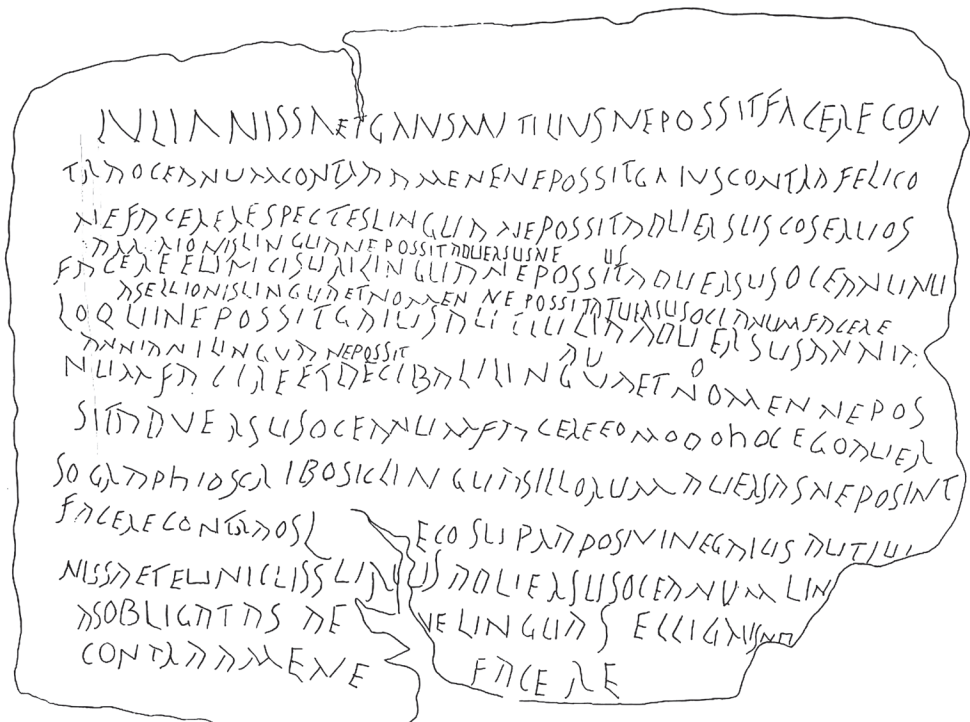 IULIANISSA ET GAIVS MUTILIUS NE POSSIT FACERE CON
TRA OCEANUM CONTRA AMENE NE POSSIT GAIVS CONTRA FELICO
NE FACERE RESPECTES LINGUA NE POSSIT ADUERSUS COSERLIOS
LINGUA NE POSSIT ADUERSUS NE US
FACERE EUNICI SURI LINGUA NE POSSIT ADUERSUS OCEANUNU
ASELLIONIS LINGUA ET NOMEN NE POSSIT ATUERSUS OCIANUM FACERE
LOQUI NE POSSIT GAIUS ADUERSUS ANNI
ANNIANI LINGUA NE POSSIT AU O
NUM FACIRE ET DECIBALI LINGUA ET NOMEN NE POS
SIT ADVERSUS OCEANUM FACERE EO MODO hOC EGO AUER
SO GRAPhIO SCRIBO SIC LINGUAS ILLORUM AUERSAS NE POSINT
FACERE CONTRA OS ECO SUPRA POSIVI NE GAIUS
NISSA ET EUNICUS ADUERSUS OCEANUM LIN
AS OBLIGATAS NE VE LINGUAS
CONTRA AMENE FACERE